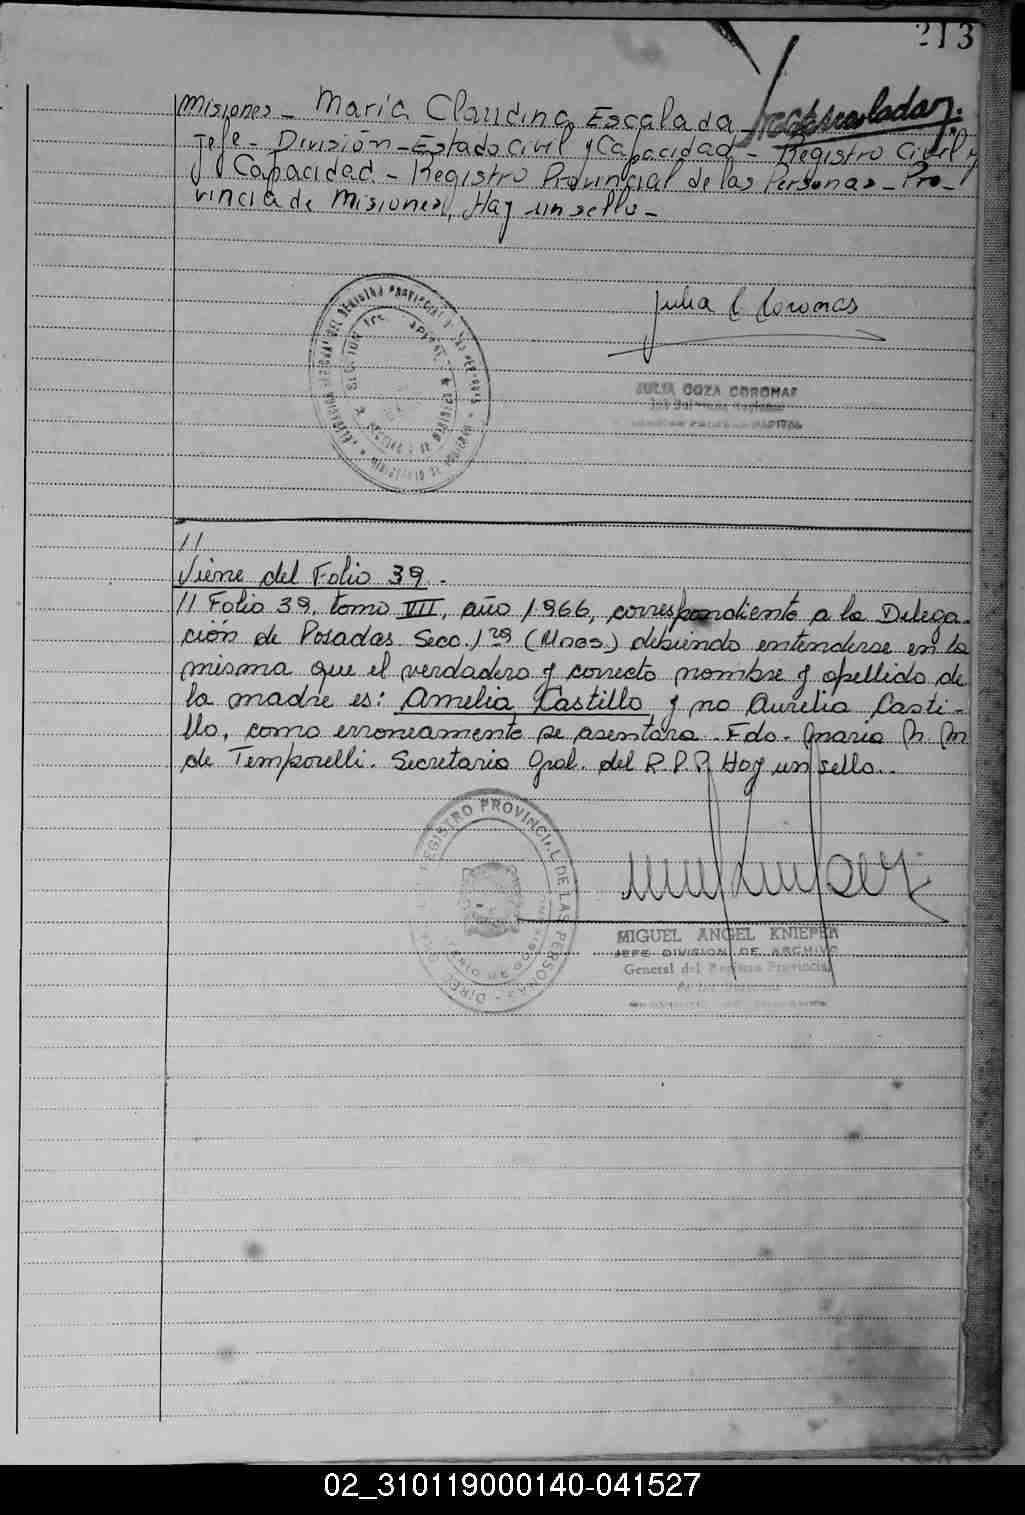 213
Misiones - María Claudina Escalada
Jefe - División - Estado Civil y Capacidad - Registro Civil y
Capacidad - Registro Provincial de las Personas - Pro-
vincia de Misiones, Hay un sello -
Julia C Coromas
JULIA COZA COROMAS
//
Viene del Folio 39.
// Folio 39, tomo VII, año 1966, correspondiente a la Delega-
ción de Posadas Secc. 1ra (Mnes.) debiendo entenderse en la
misma que el verdadero y correcto nombre y apellido de
la madre es: Amelia Castillo y no Aurelia Casti-
llo, como erroneamente se asentara. Fdo. Maria M. M
de Temporelli. Secretario Gral. del R.P.P. Hay un sello..
REGISTRO PROVINCIAL DE LAS PERSONAS
MIGUEL ANGEL KNIEPER
JEFE DIVISION DE ARCHIVO
General del Registro Provincial
de las Personas
02_310119000140-041527